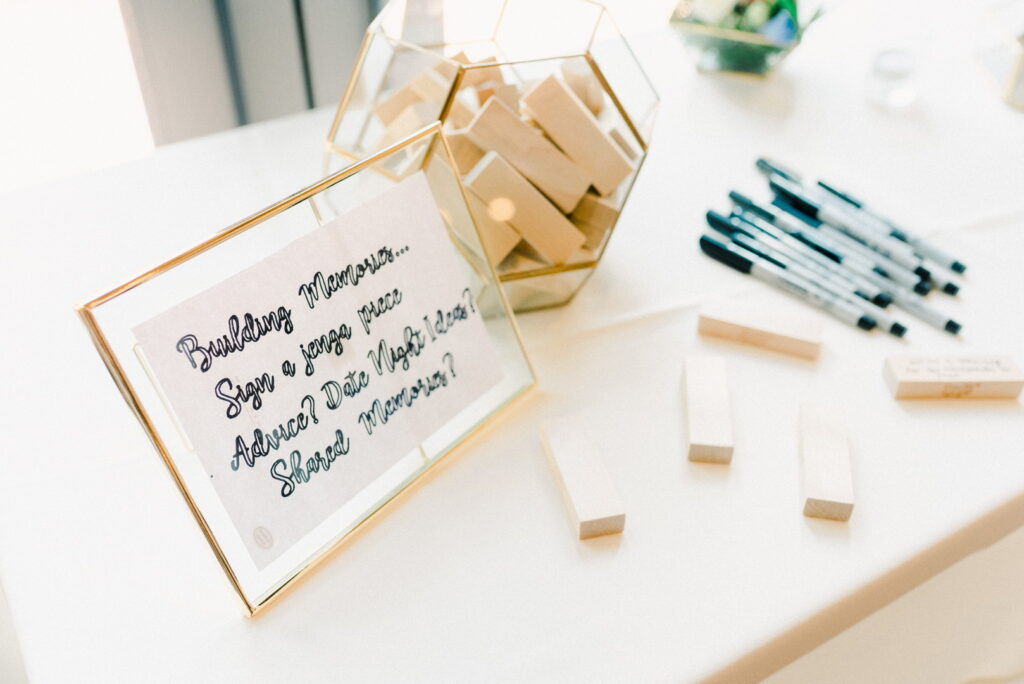 Building Memories...
Sign a jenga piece
Advice? Date Night Ideas?
Shared Memories?